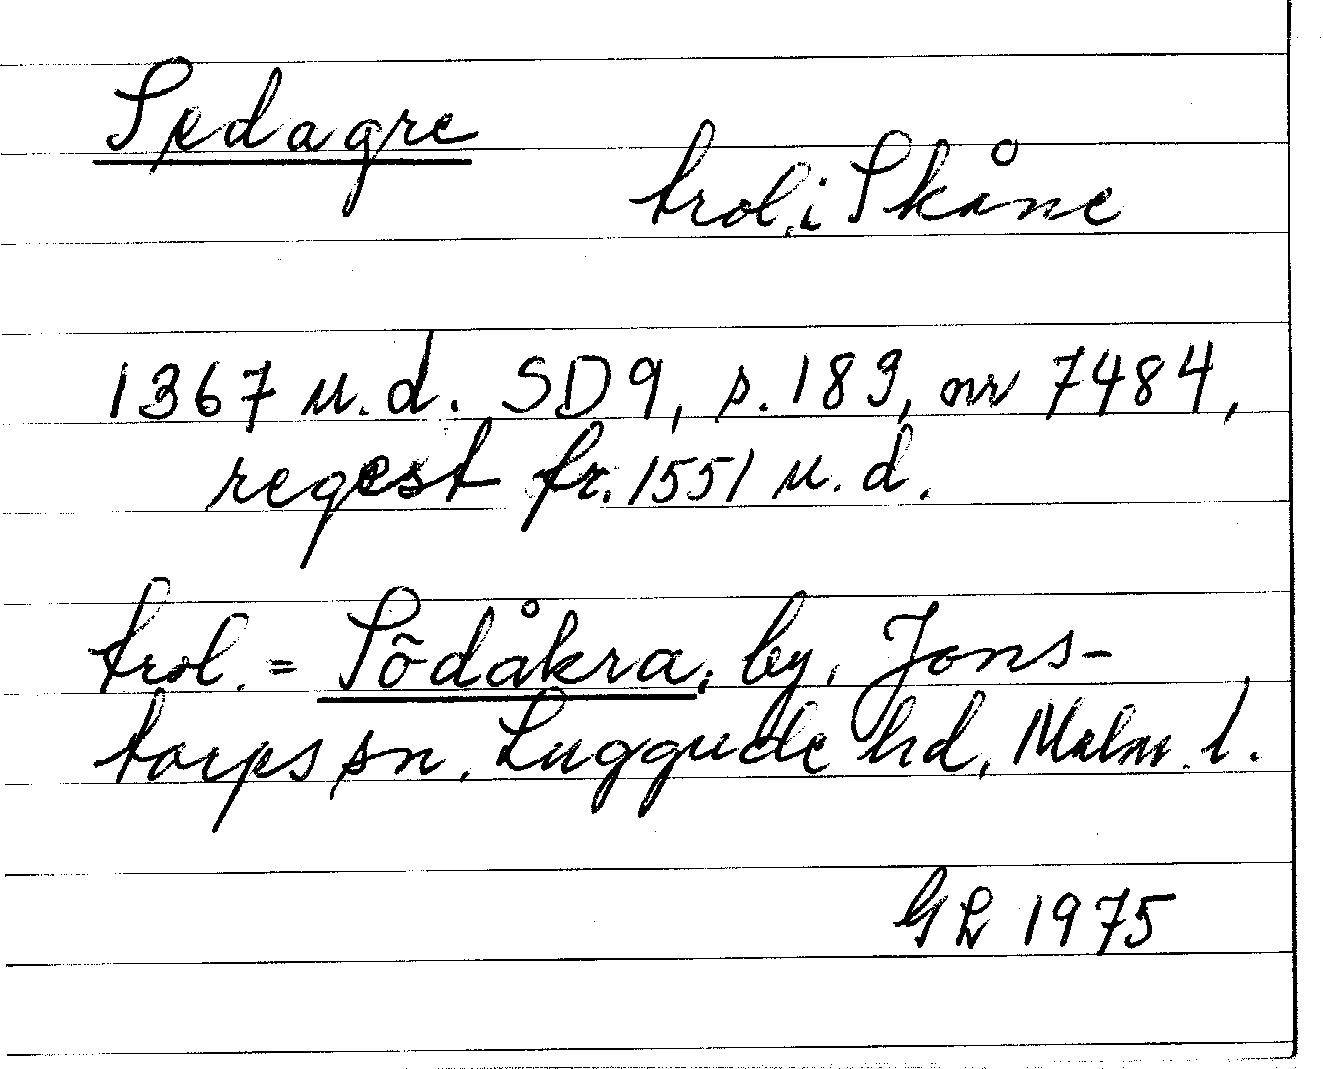 Sedagre
trol. i Skåne
1367 u.d. SD9, s. 183, nr 7484,
regest fr. 1551 u.d.
trol. = Södåkra, by, Jons-
torps sn, Luggude hd, Malm. l.
GL 1975